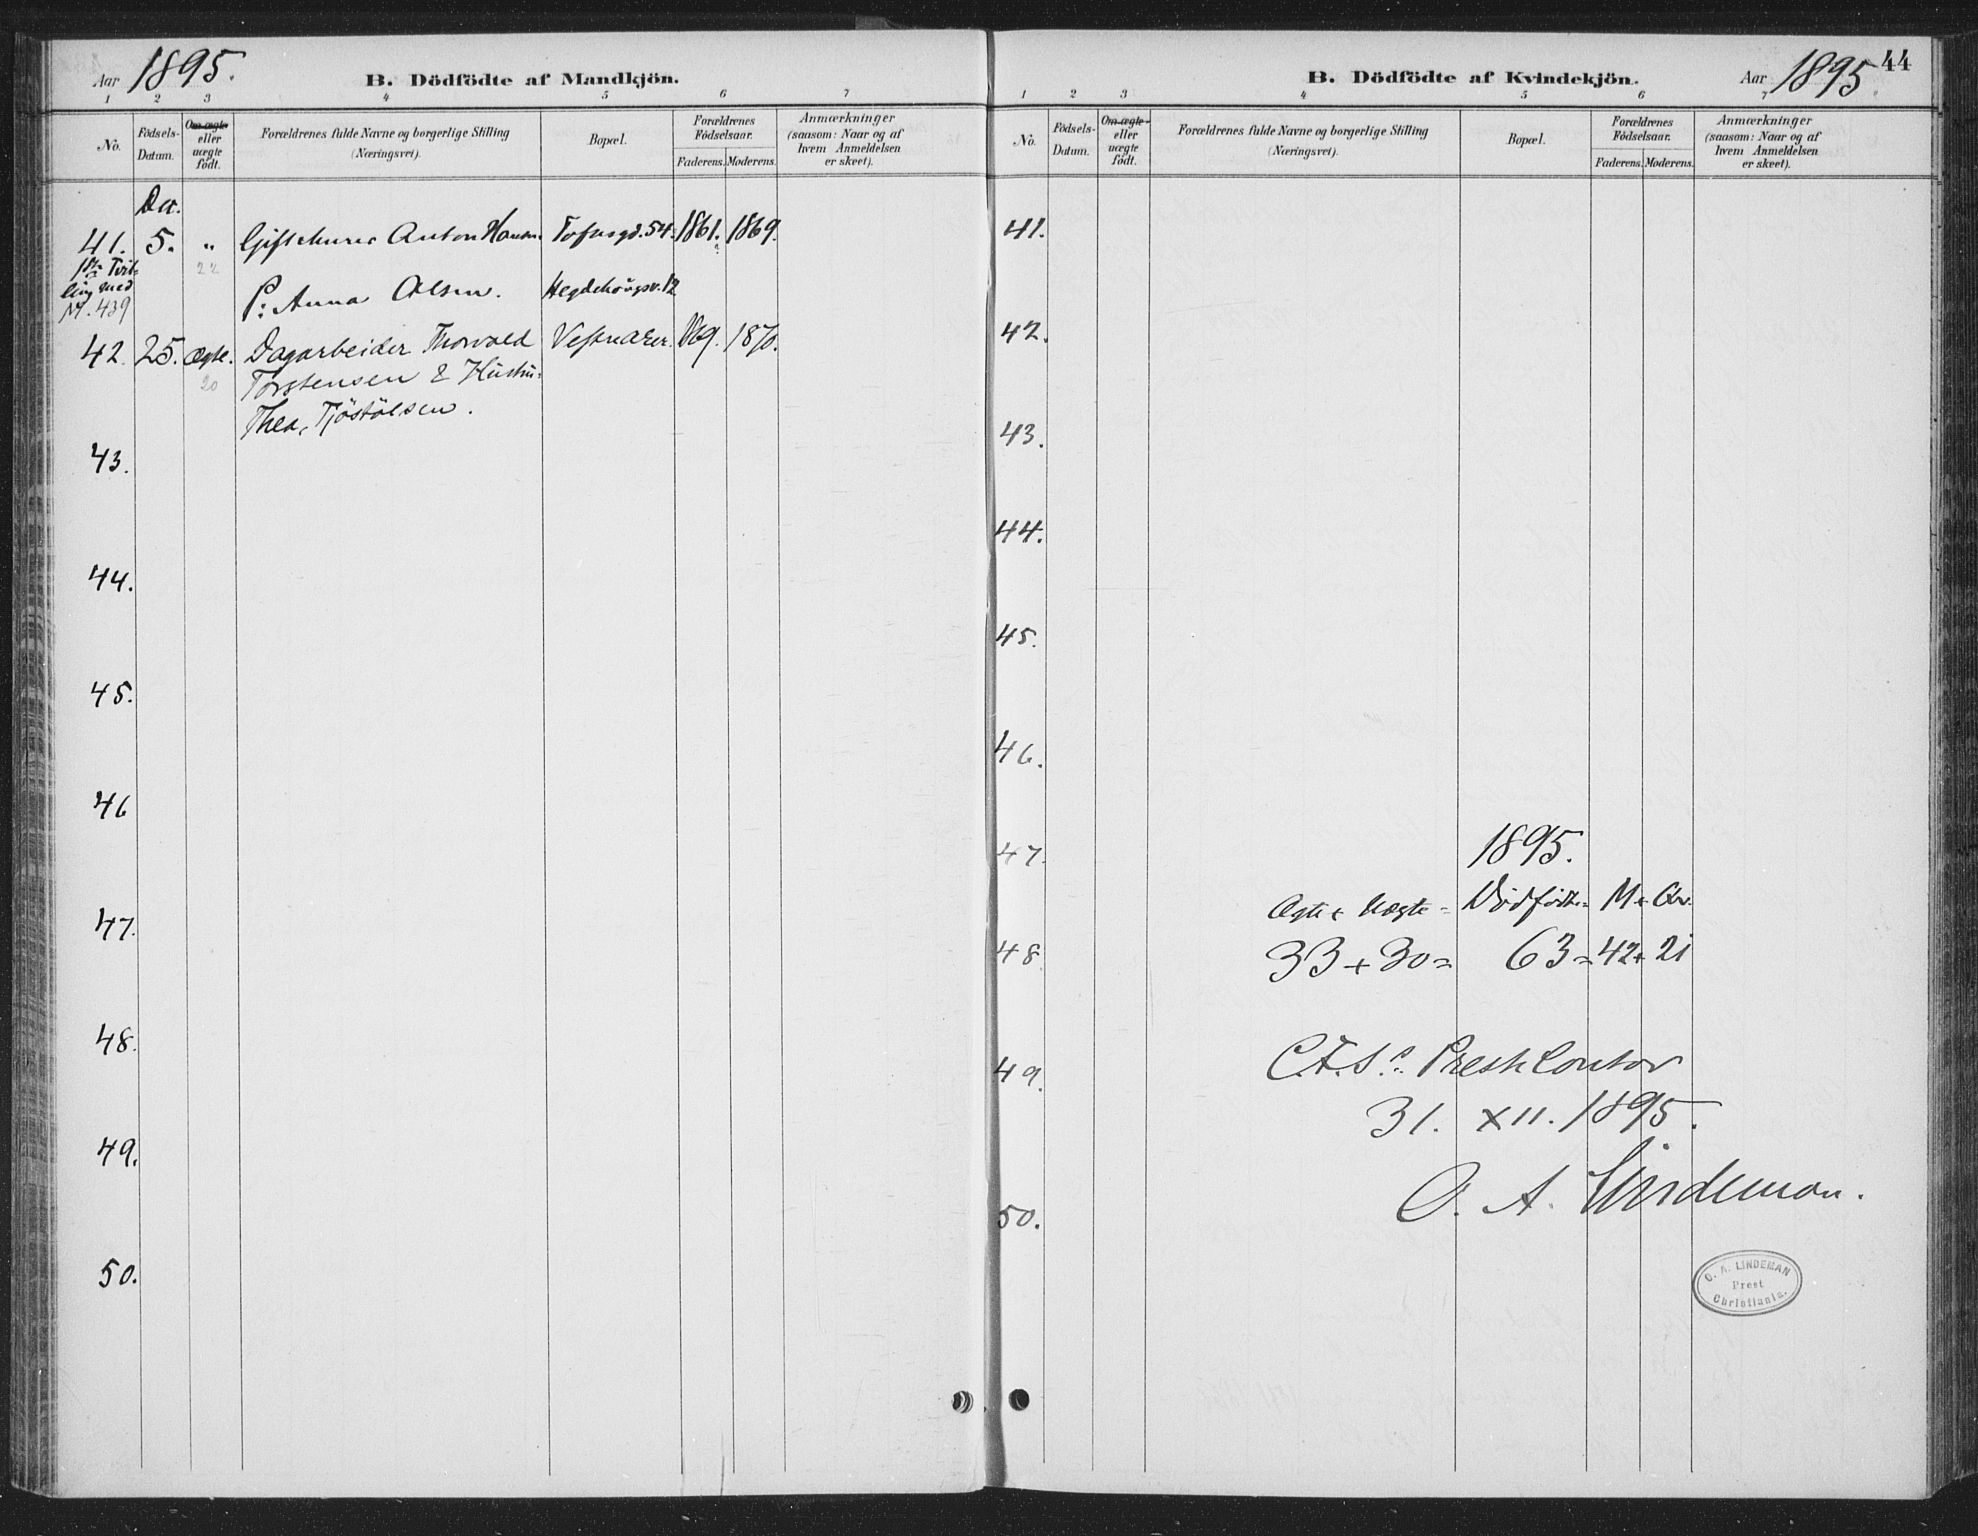 Aar 1895.
B. Dödfödte af Mandkjön.
1 2 3 4 5 6 7
No.
Födsels-
Datum.
Om ægte
eller
uægte
födt.
Forældrenes fulde Navne og borgerlige Stilling
(Næringsvei).
Bopæl.
Forældrenes
Födselsaar.
Faderens. Moderens.
Anmærkninger
(saasom: Naar og af
hvem Anmeldelsen
er skeet).
41. 5. " Anton 54. 1861. 1869.
22
ling med
N. 439
P: Anna Olsen. Hegdehougsv. 12
42. 25. Ægte. Dagarbeider Thorvald 1870.
20
Torstensen & Hustru
Thea, Tjöstölsen.
43.
44.
45.
46
47.
48.
49.
50.
B. Dödfödte af Kvindekjön.
Aar 1895.
44
1 2 3 4 5 6 7
No.
Födsels-
Datum.
Om ægte
eller
uægte
födt.
Forældrenes fulde Navne og borgerlige Stilling
(Næringsvei).
Bopæl.
Forældrenes
Födselsaar.
Faderens. Moderens.
Anmærkninger
(saasom: Naar og af
hvem Anmeldelsen
er skeet).
41.
42.
43.
44.
45.
46.
47.
1895.
Ægte + Uægte = Dödfödte = M + Qv.
48
33 + 30 = 63 = 42 + 21
49.
PrestContor
31. XII. 1895.
O. A. Lindeman.
50.
O. A. LINDEMAN
Prest
Christiania.